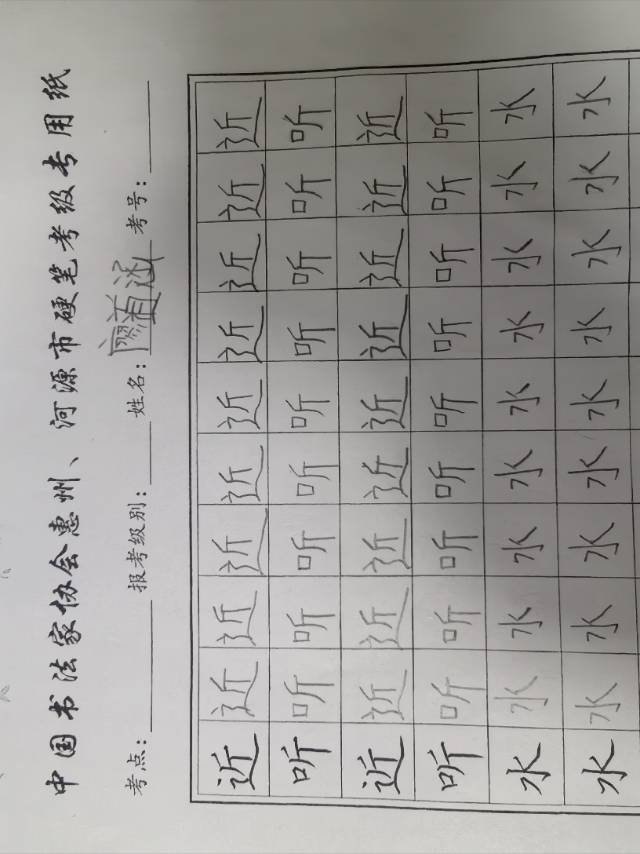 中国书法家协会惠州、河源市硬笔考级专用纸
考点： 报考级别： 姓名： 考号：
近近近近近近近近近近
听听听听听听听听听听
近近近近近近近近近近
听听听听听听听听听听
水水水水水水水水水水
水水水水水水水水水水